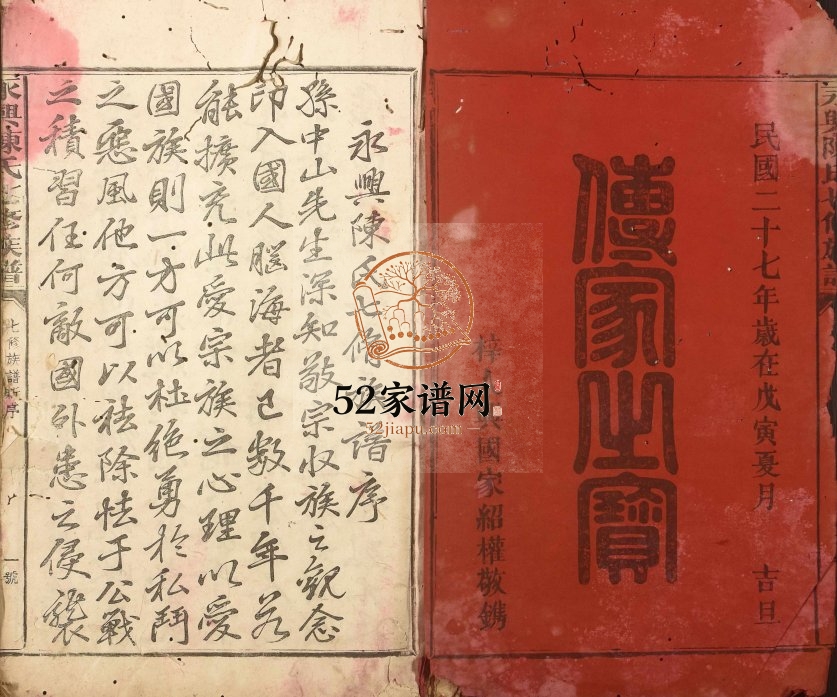 民國二十七年歲在戊寅夏月 吉旦
傳家之寶
梓 國家紹權敬鐫
永興陳氏七修族譜序
孫中山先生深知敬宗收族之觀念
印入國人腦海者已數千年若
能擴充此愛宗族之心理以愛
國族則一方可以杜絕勇於私鬥
之惡風他方可以祛除怯于公戰
之積習任何敵國外患之侵襲
永興陳氏七修族譜
七修族譜 序 八
一號
52家谱网
52jiapu.com